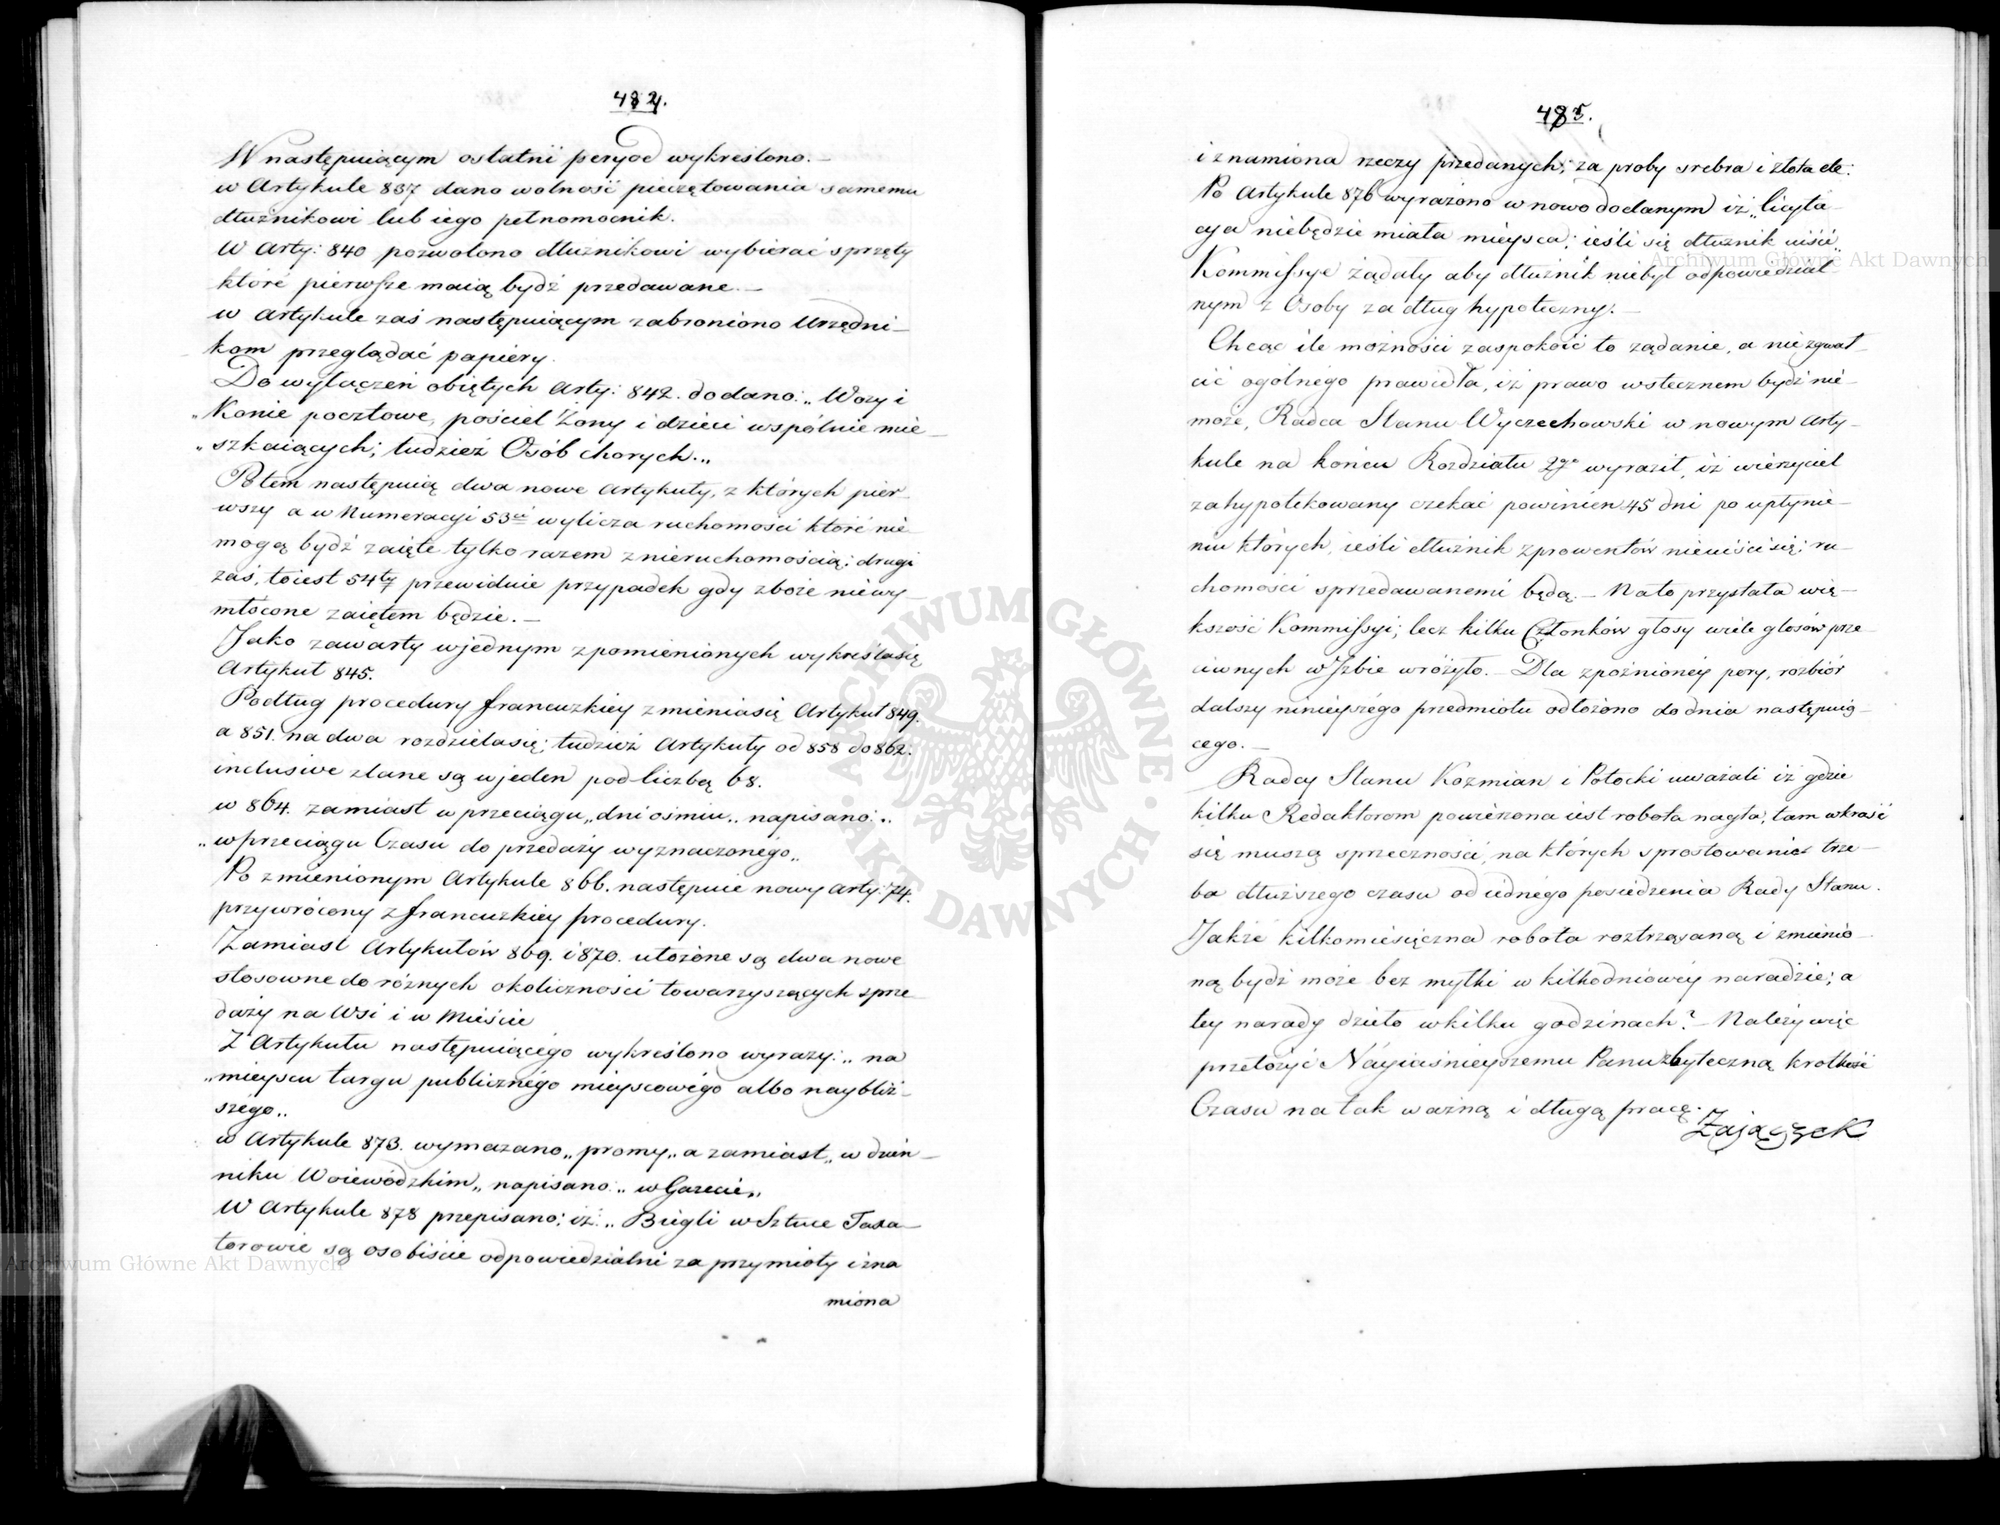 484.
W następuiącym ostatni peryod wykreślono. –
w Artykule 837 dano wolność pieczętowania samemu
dłużnikowi lub iego pełnomocnik.
W Arty: 840 pozwolono dłużnikowi wybierać sprzęty
które pierwsze maią bydź przedawane. –
w Artykule zaś następuiącym zabroniono Urzędni–
kom przeglądać papiery.
Do wyłączeń obiętych Arty: 842. dodano: „Wozy i
„Konie pocztowe, pościel Żony i dzieci wspólnie mie–
„szkaiących; tudzież Osób chorych.„
Potem następuią dwa nowe Artykuły, z których pier–
wszy a w Numeracyi 53ci wylicza ruchomości które nie
mogą bydź zaięte tylko razem z nieruchomością; drugi
zaś, toiest 54ty przewiduie przypadek gdy zboże niewy–
młócone zaiętem będzie. –
Jako zawarty w jednym z pomienionych wykreślasię
Artykuł 845.
Podług procedury francuzkiey zmieniasię Artykuł 849.
a 851. na dwa rozdzielasię; tudzież Artykuły od 858 do 862.
inclusive zlane są w jeden pod liczbą 68.
w 864. zamiast w przeciągu „dni ośmiu„ napisano: „
„w przeciągu Czasu do przedaży wyznaczonego„
Po zmienionym Artykule 866. następuie nowy Arty: 74.
przywrócony z francuzkiey procedury.
Zamiast Artykułów 869. i 870. ułożone są dwa nowe
stosowne do różnych okoliczności towarzyszących sprze
daży na Wsi i w Mieście
Z Artykułu następuiącego wykreślono wyrazy: „na
„mieyscu targu publicznego mieyscowego albo naybliż–
szego„
w Artykule 873. wymazano „promy„ a zamiast „w dzien–
niku Woiewódzkim„ napisano: „w Gazecie„
W Artykule 878 przepisano; iż: „Biegli w Sztuce Taxa–
torowie są osobiście odpowiedzialni za przymioty i zna
miona
485.
i znamiona rzeczy przedanych; za proby srebra i złota etc:
Po Artykule 876 wyrażono w nowo dodanym iż „licyta–
cya niebędzie miała mieysca; ieśli się dłużnik uiści„
Kommissye żądały aby dłużnik niebył odpowiedzial–
nym z Osoby za dług hypoteczny. –
Chcąc ile możności zaspokoić to żądanie, a nie zgwał–
cić ogólnego prawidła, iż prawo wstecznem bydź nie–
może, Radca Stanu Wyczechowski w nowym Arty–
kule na końcu Rozdziału 2go wyraził, iż wierzyciel
zahypotekowany czekać powinien 45 dni po upłynie–
niu których, ieśli dłużnik z prowentów nieuiści się; ru–
chomości sprzedawanemi będą. – Na to przystała wię–
kszość Kommissyi; lecz kilku Członków głosy wiele głosów prze
ciwnych w Izbie wróżyło. – Dla zpoźnioney pory, rozbiór
dalszy ninieyszego przedmiotu odłożono do dnia następuią–
cego. –
Radcy Stanu Kozmian i Potocki uważali iż gdzie
kilku Redaktorom powierzona iest robota nagła, tam wkraść
się muszą sprzeczności, na których sprostowanie trze–
ba dłuższego czasu od iednego posiedzenia Rady Stanu.
Jakże kilkomiesięczna robota roztrząsaną i zmienio–
ną bydź może bez myłki w kilkodniowéy naradzie; a
tey narady dzieło w kilku godzinach? – Należy więc
przełożyć Nayiaśnieyszemu Panu zbyteczną krotkość
Czasu na tak ważną i długą pracę.
Zajączek
ARCHIWUM GŁÓWNE · AKT DAWNYCH ·
Archiwum Główne Akt Dawnych
Archiwum Główne Akt Dawnych